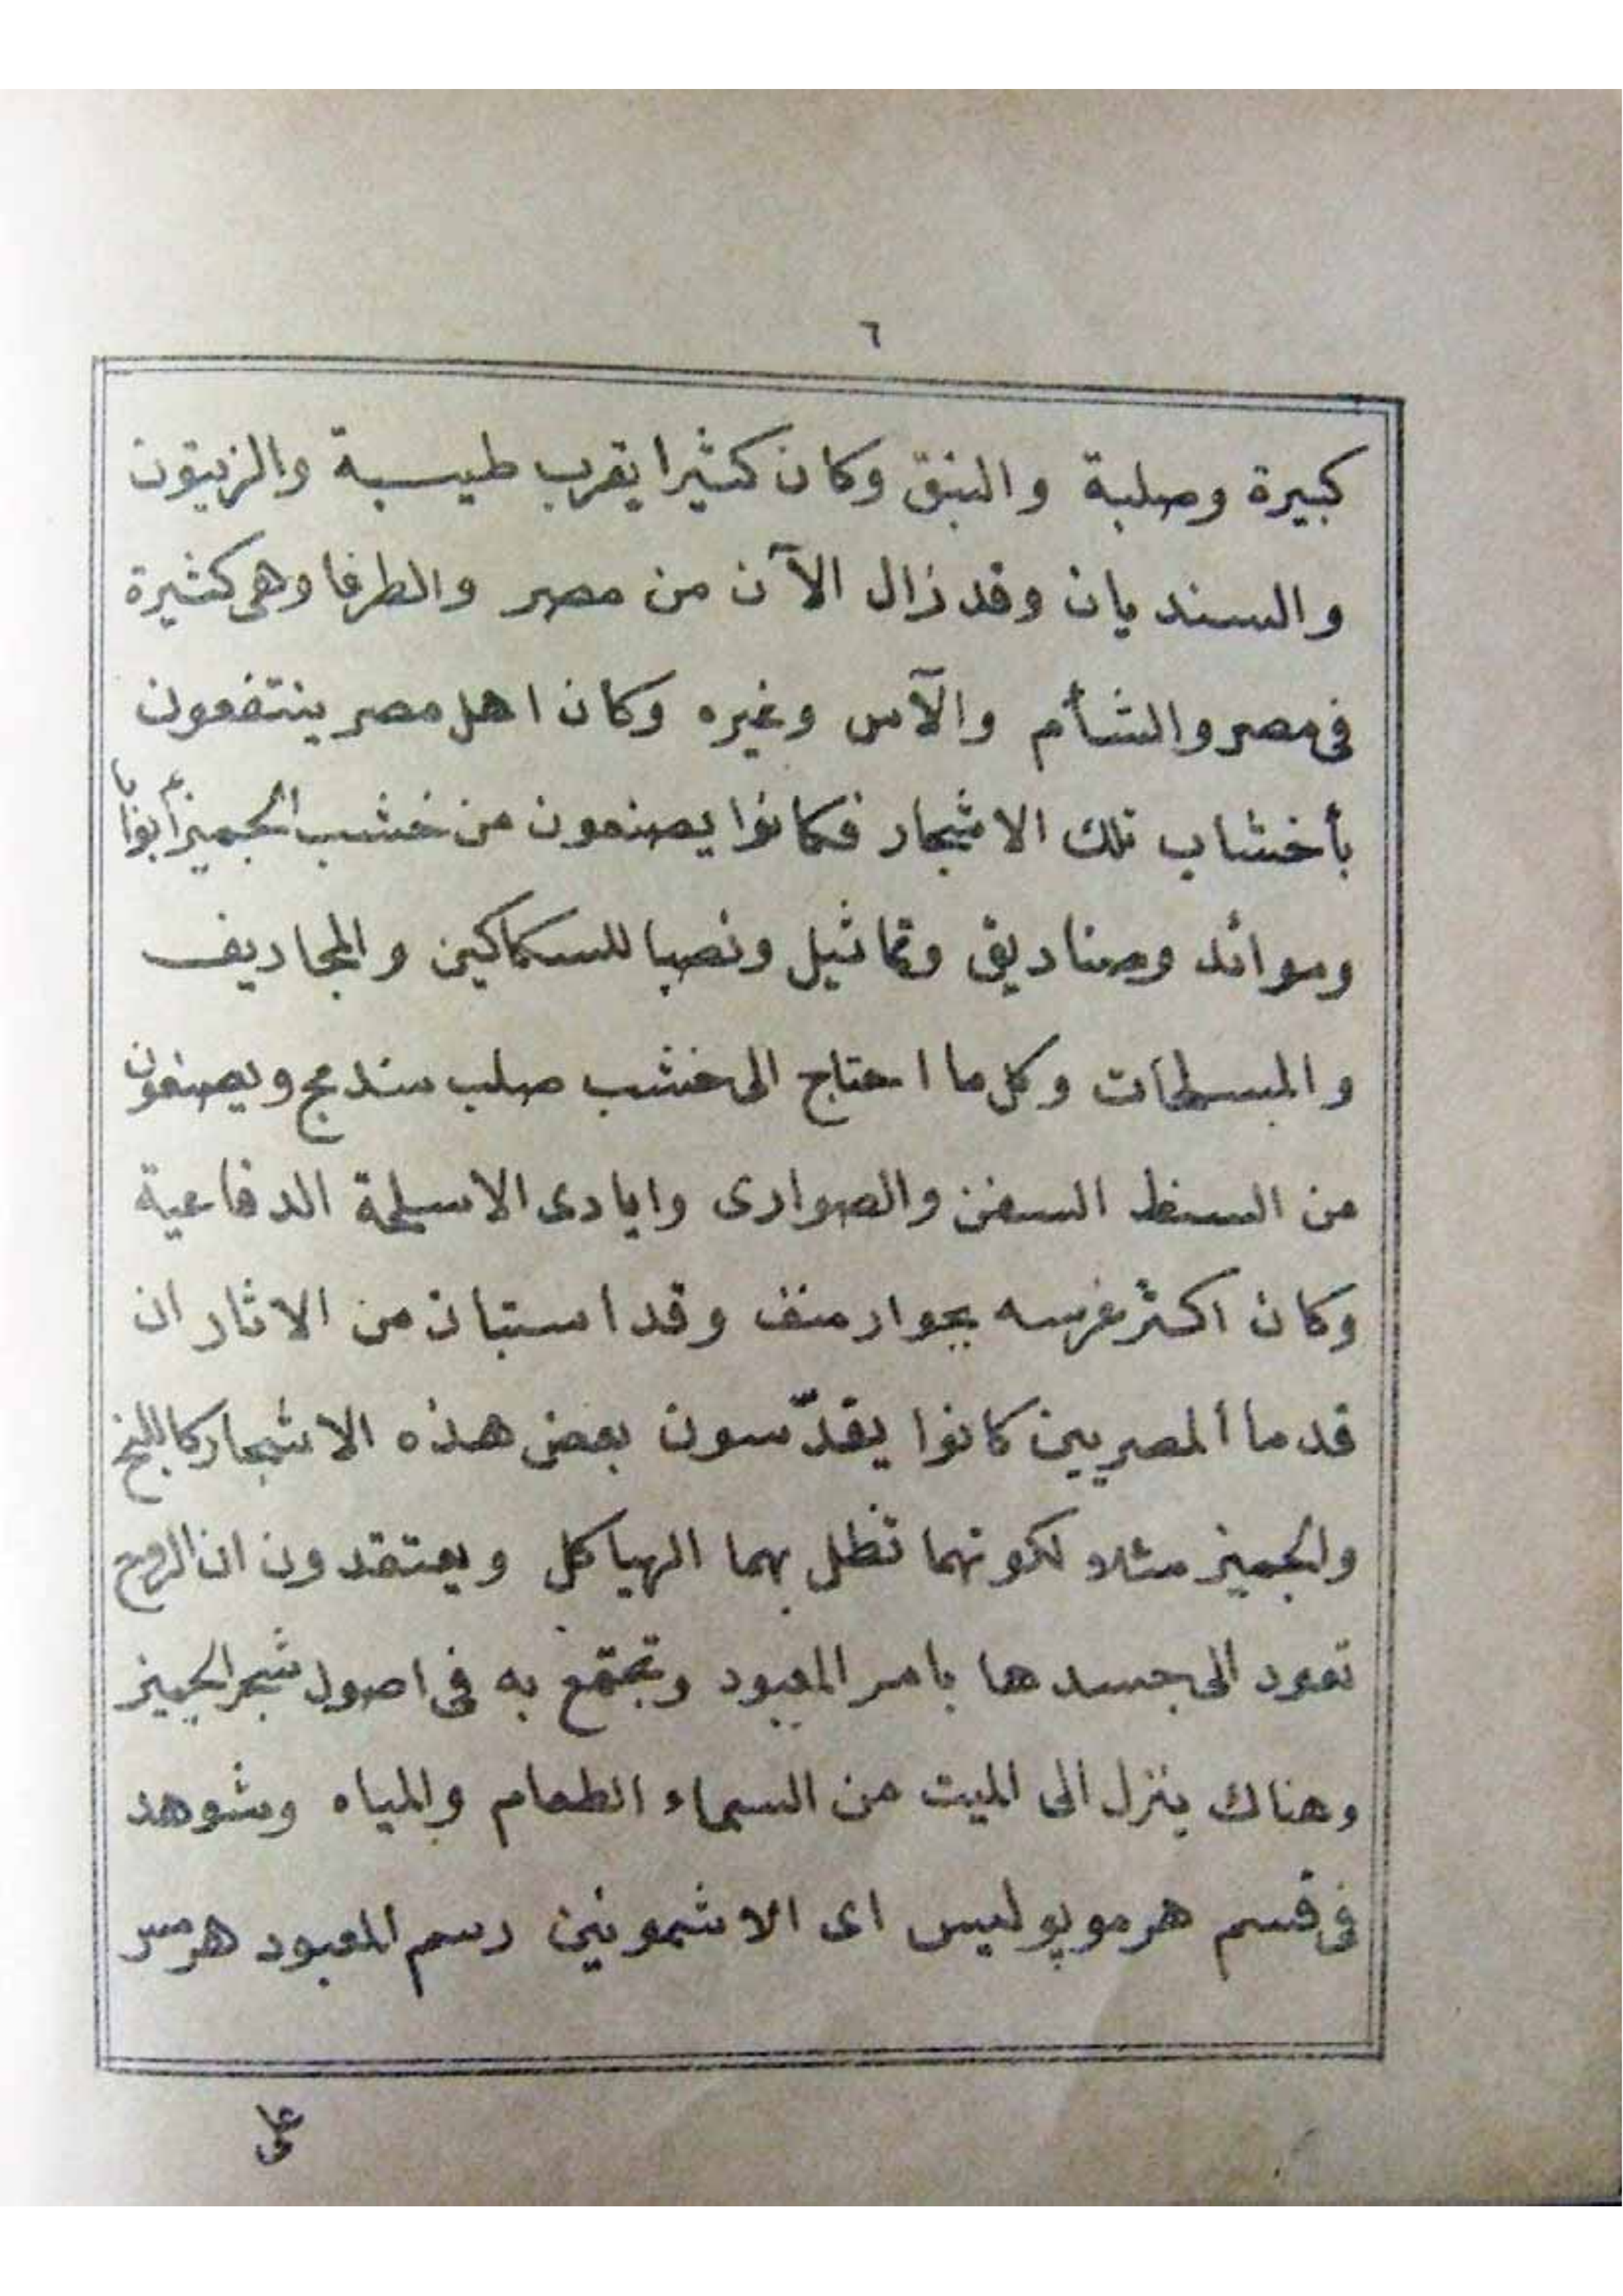 ٦
كبيرة وصلبة والنبق وكان كثيرا يقرب طيبة والزيتون
والسنديان وقد زال الآن من مصر والطرفا وهى كثيرة
فى مصر والشأم والآس وغيره وكان اهل مصر ينتفعون
بأخشاب تلك الاشجار فكانوا يصنعون من خشب الجميز أبوابا
وموائد وصناديق وتماثيل ونصبا للسكاكين والمجاديف
والمسطحات وكل ما احتاج الى خشب صلب مندمج ويصنعون
من السنط السفن والصوارى وايادى الاسلحة الدفاعية
وكان اكثر غرسه بجوار منف وقد استبان من الاثار ان
قدما المصريين كانوا يقدّسون بعض هذه الاشجار كاللبخ
والجميز مثلا لكونهما تظل بهما الهياكل ويعتقدون ان الروح
تعود الى جسدها بامر المعبود وتجتمع به فى اصول شجر الجميز
وهناك ينزل الى الميت من السماء الطعام والمياه وشوهد
فى قسم هرموپوليس اى الاشمونين رسم المعبود هرمس
على